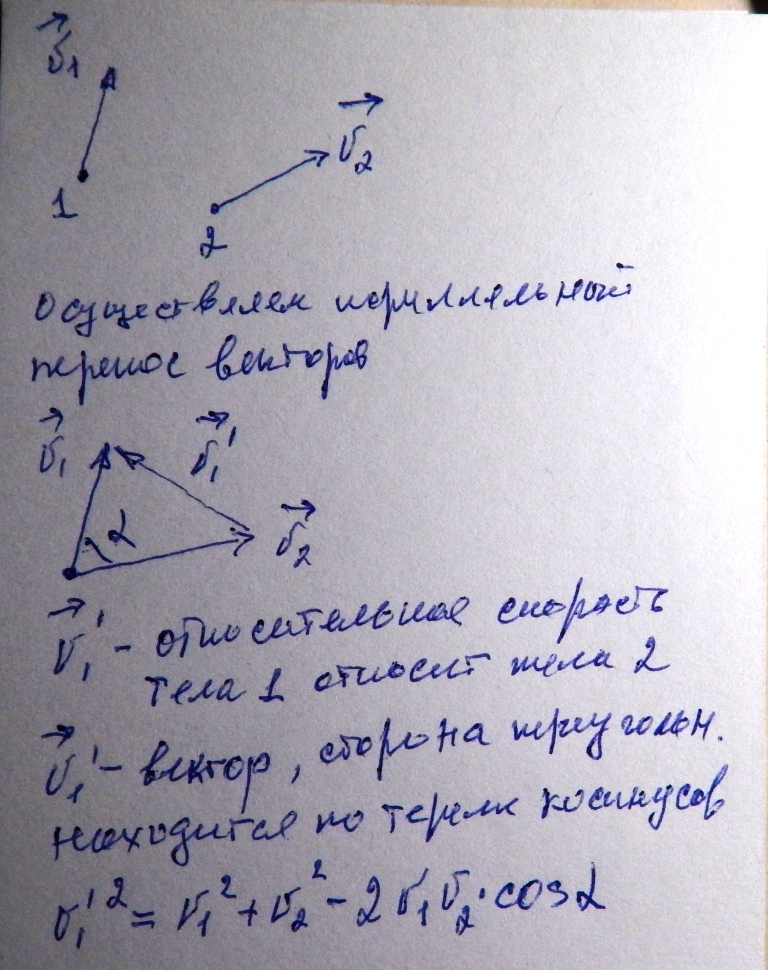 v⃗₁
v⃗₂
1
2
осуществляем параллельный
перенос векторов
v⃗₁ v⃗₁'
α
v⃗₂
v⃗₁' - относительная скорость
тела 1 относит тела 2
v⃗₁' - вектор, сторона треугольн.
находится по теореме косинусов
v₁'² = v₁² + v₂² - 2 v₁ v₂ · cos α